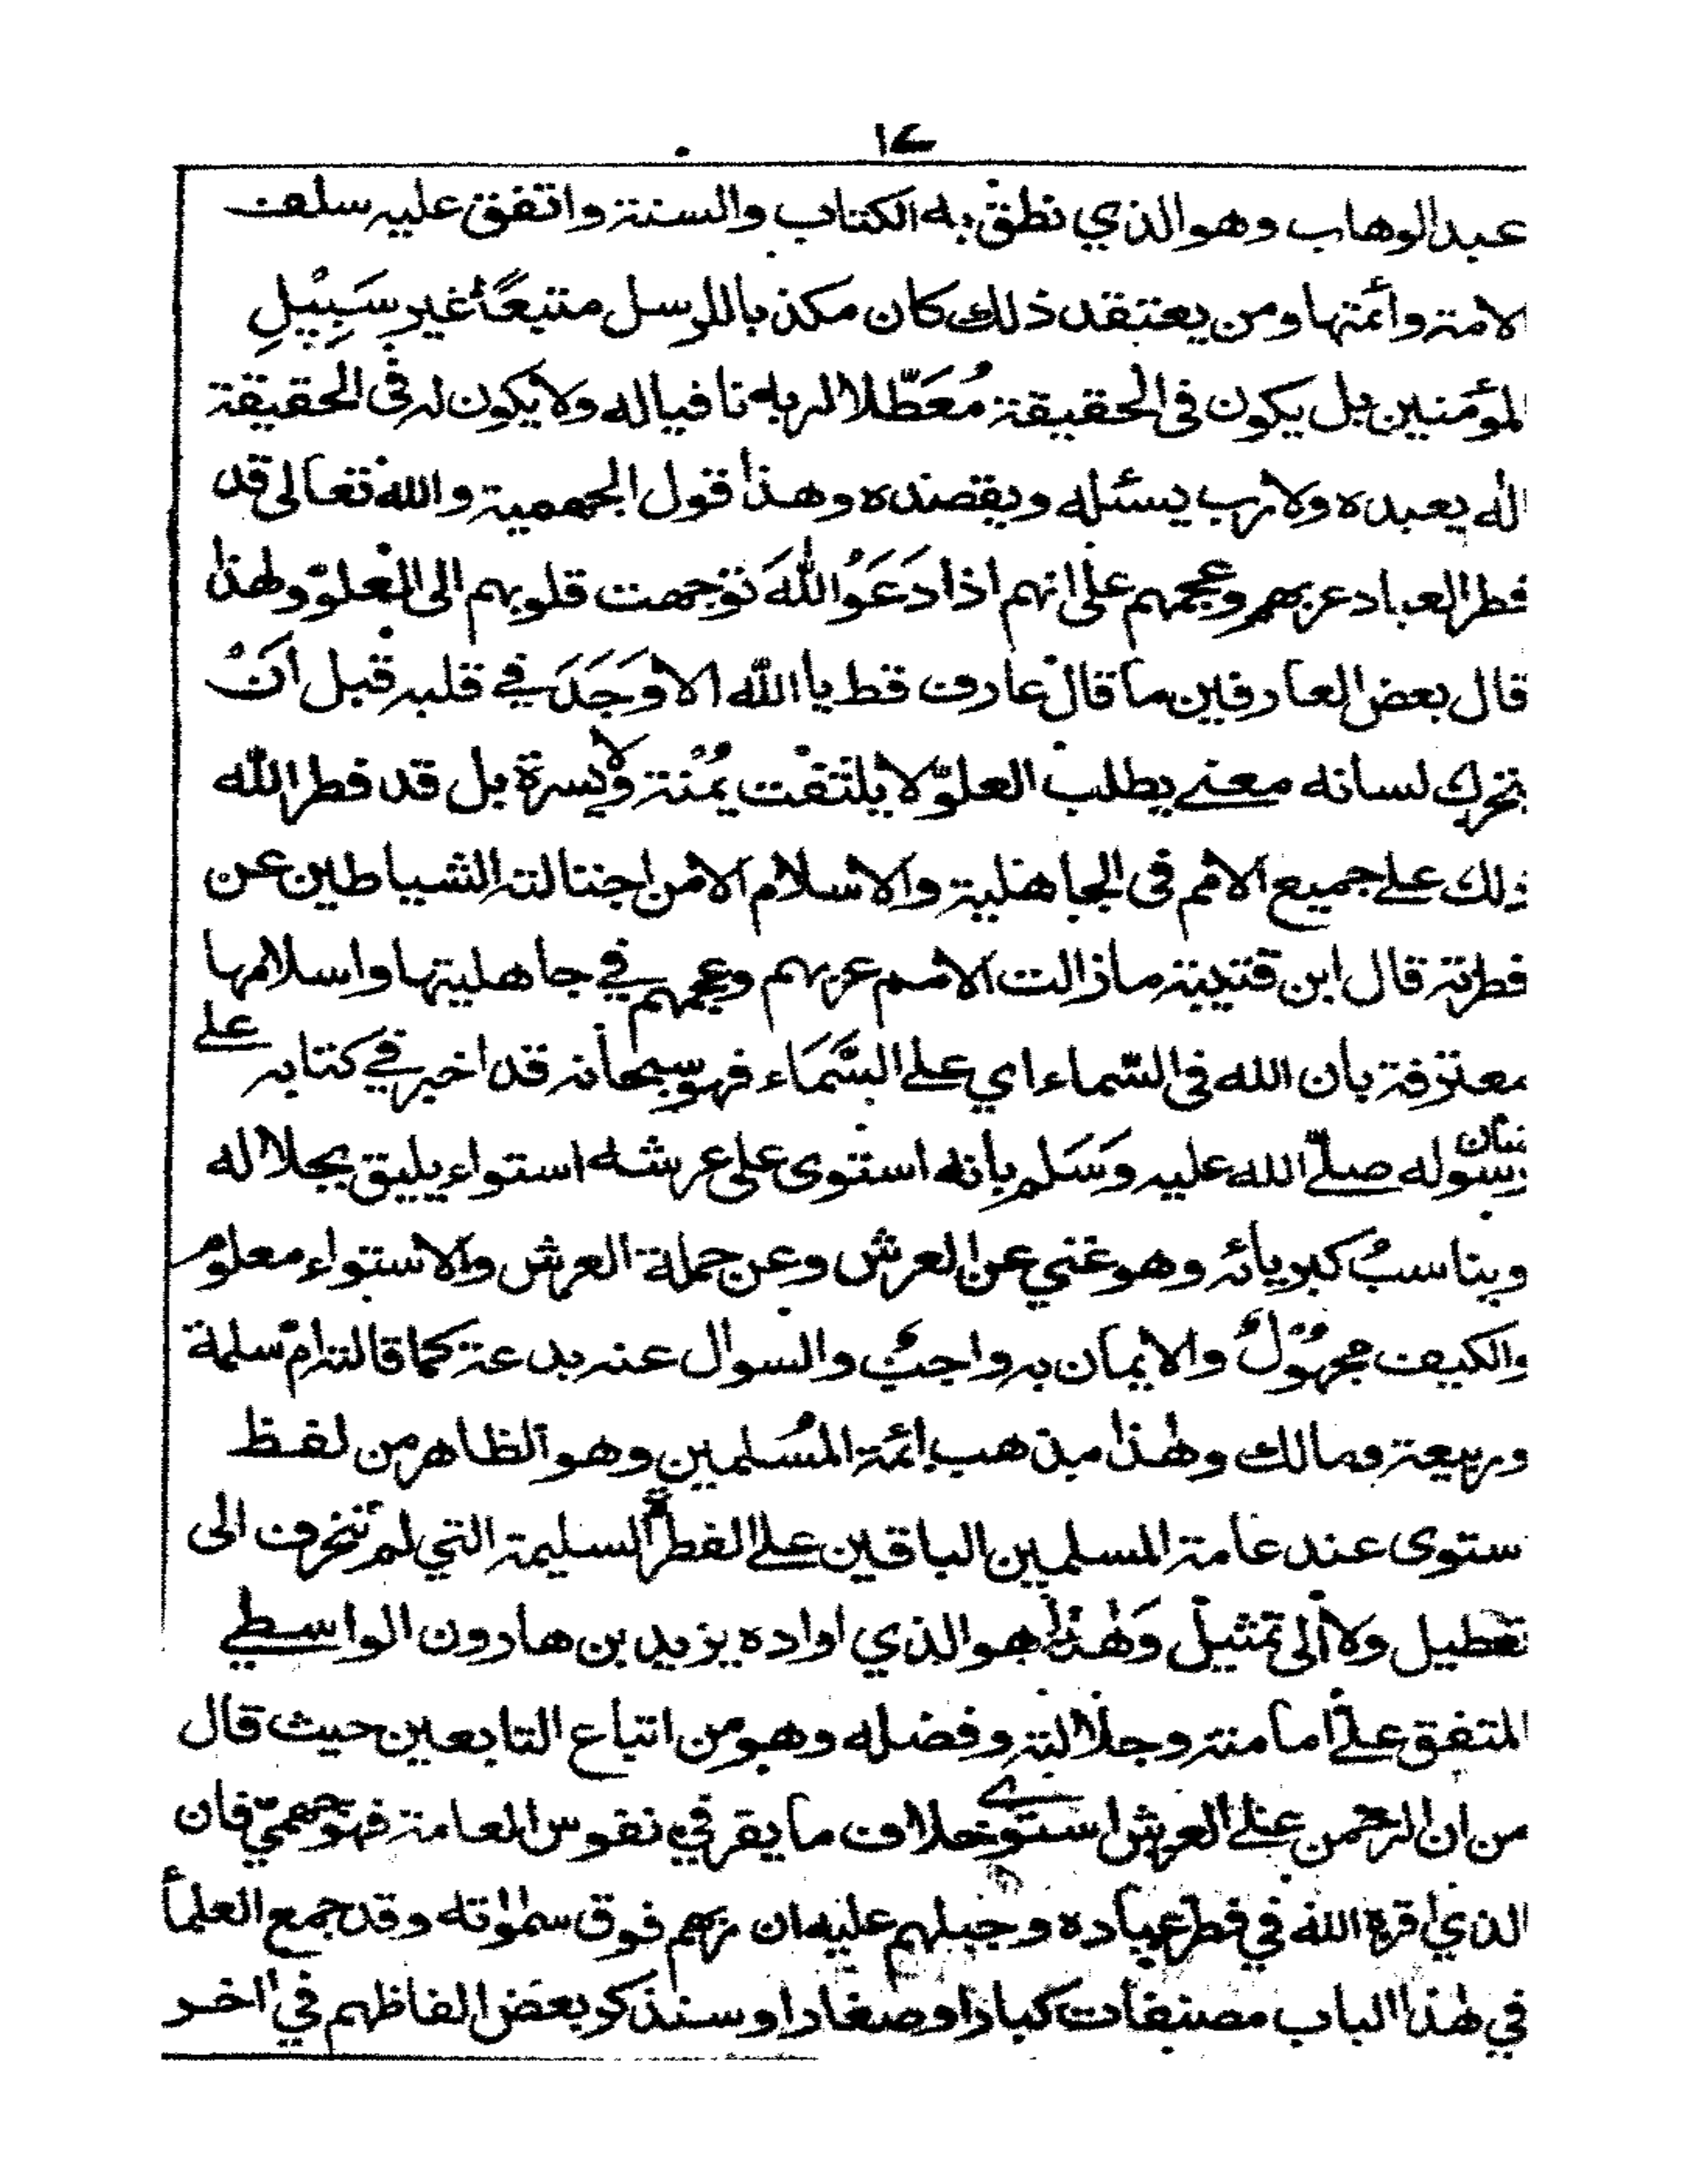 ١٤
عبدالوهاب وهوالذي نطق به الكتاب والسنة واتفق عليه سلف
لامة وائمتها ومن يعتقد ذلك كان مكذباللرسل متبعًا غير سَبِيْلِ
لمؤمنين بل يكون فى الحقيقة مُعَطّلا لربه نافياله ولايكون له فى الحقيقة
اله يعبده ولارب يسئله ويقصده وهذا قول الجهمية والله تعالى قد
فطرالعباد عربهم وعجمهم على انهم اذا دَعَوُا اللهَ توجهت قلوبهم الى العلو ولهذا
قال بعض العارفين ما قال عارف قط يا الله الا وَجَدَ في قلبه قبل انْ
يتحرك لسانه معنے يطلب العلوّ لا يلتفت يُمْنة ولا يسرة بل قد فطرالله
ذلك علے جميع الامم فى الجاهلية والاسلام الامن اجتالته الشياطين عن
فطرته قال ابن قتيبة مازالت الامم عربهم وعجمهم في جاهليتها واسلامها
معترفة بان الله فى السّماء اي علے السَّمَاء فهو سبحانه قد اخبر في كتابه علے
لسان
رسوله صلّے الله عليه وَسَلم بانه استوى على عرشه استواء يليق بجلاله
ويناسبُ كبريائه وهو غني عن العرش وعن حملة العرش والاستواء معلوم
والكيف مجهُوْلٌ والايمان به واجبٌ والسوال عنه بدعة كما قالته امّ سلمة
وربيعة ومالك وهٰذا مذهب ائمة المُسلمين وهو الظاهر من لفظ
ستوى عند عامة المسلمين الباقين علے الفطرة السليمة التي لم تنحرف الى
تعطيل ولا الى تمثيل وَهٰذا هوالذي اواده يزيد بن هارون الواسطے
المتفق علے امامته وجلالته وفضله وهو من اتباع التابعين حيث قال
من ان الرحمن علے العرش استوے خلاف ما يقر في نفوس العامة فهو جهميّ فان
الذي اقره الله في فطر عباده وجبلهم عليه ان ربهم فوق سمٰوٰته وقد جمع العلمأ
في هٰذا الباب مصنفات كبادا وصغادا وسنذكر بعض الفاظهم في اٰخر